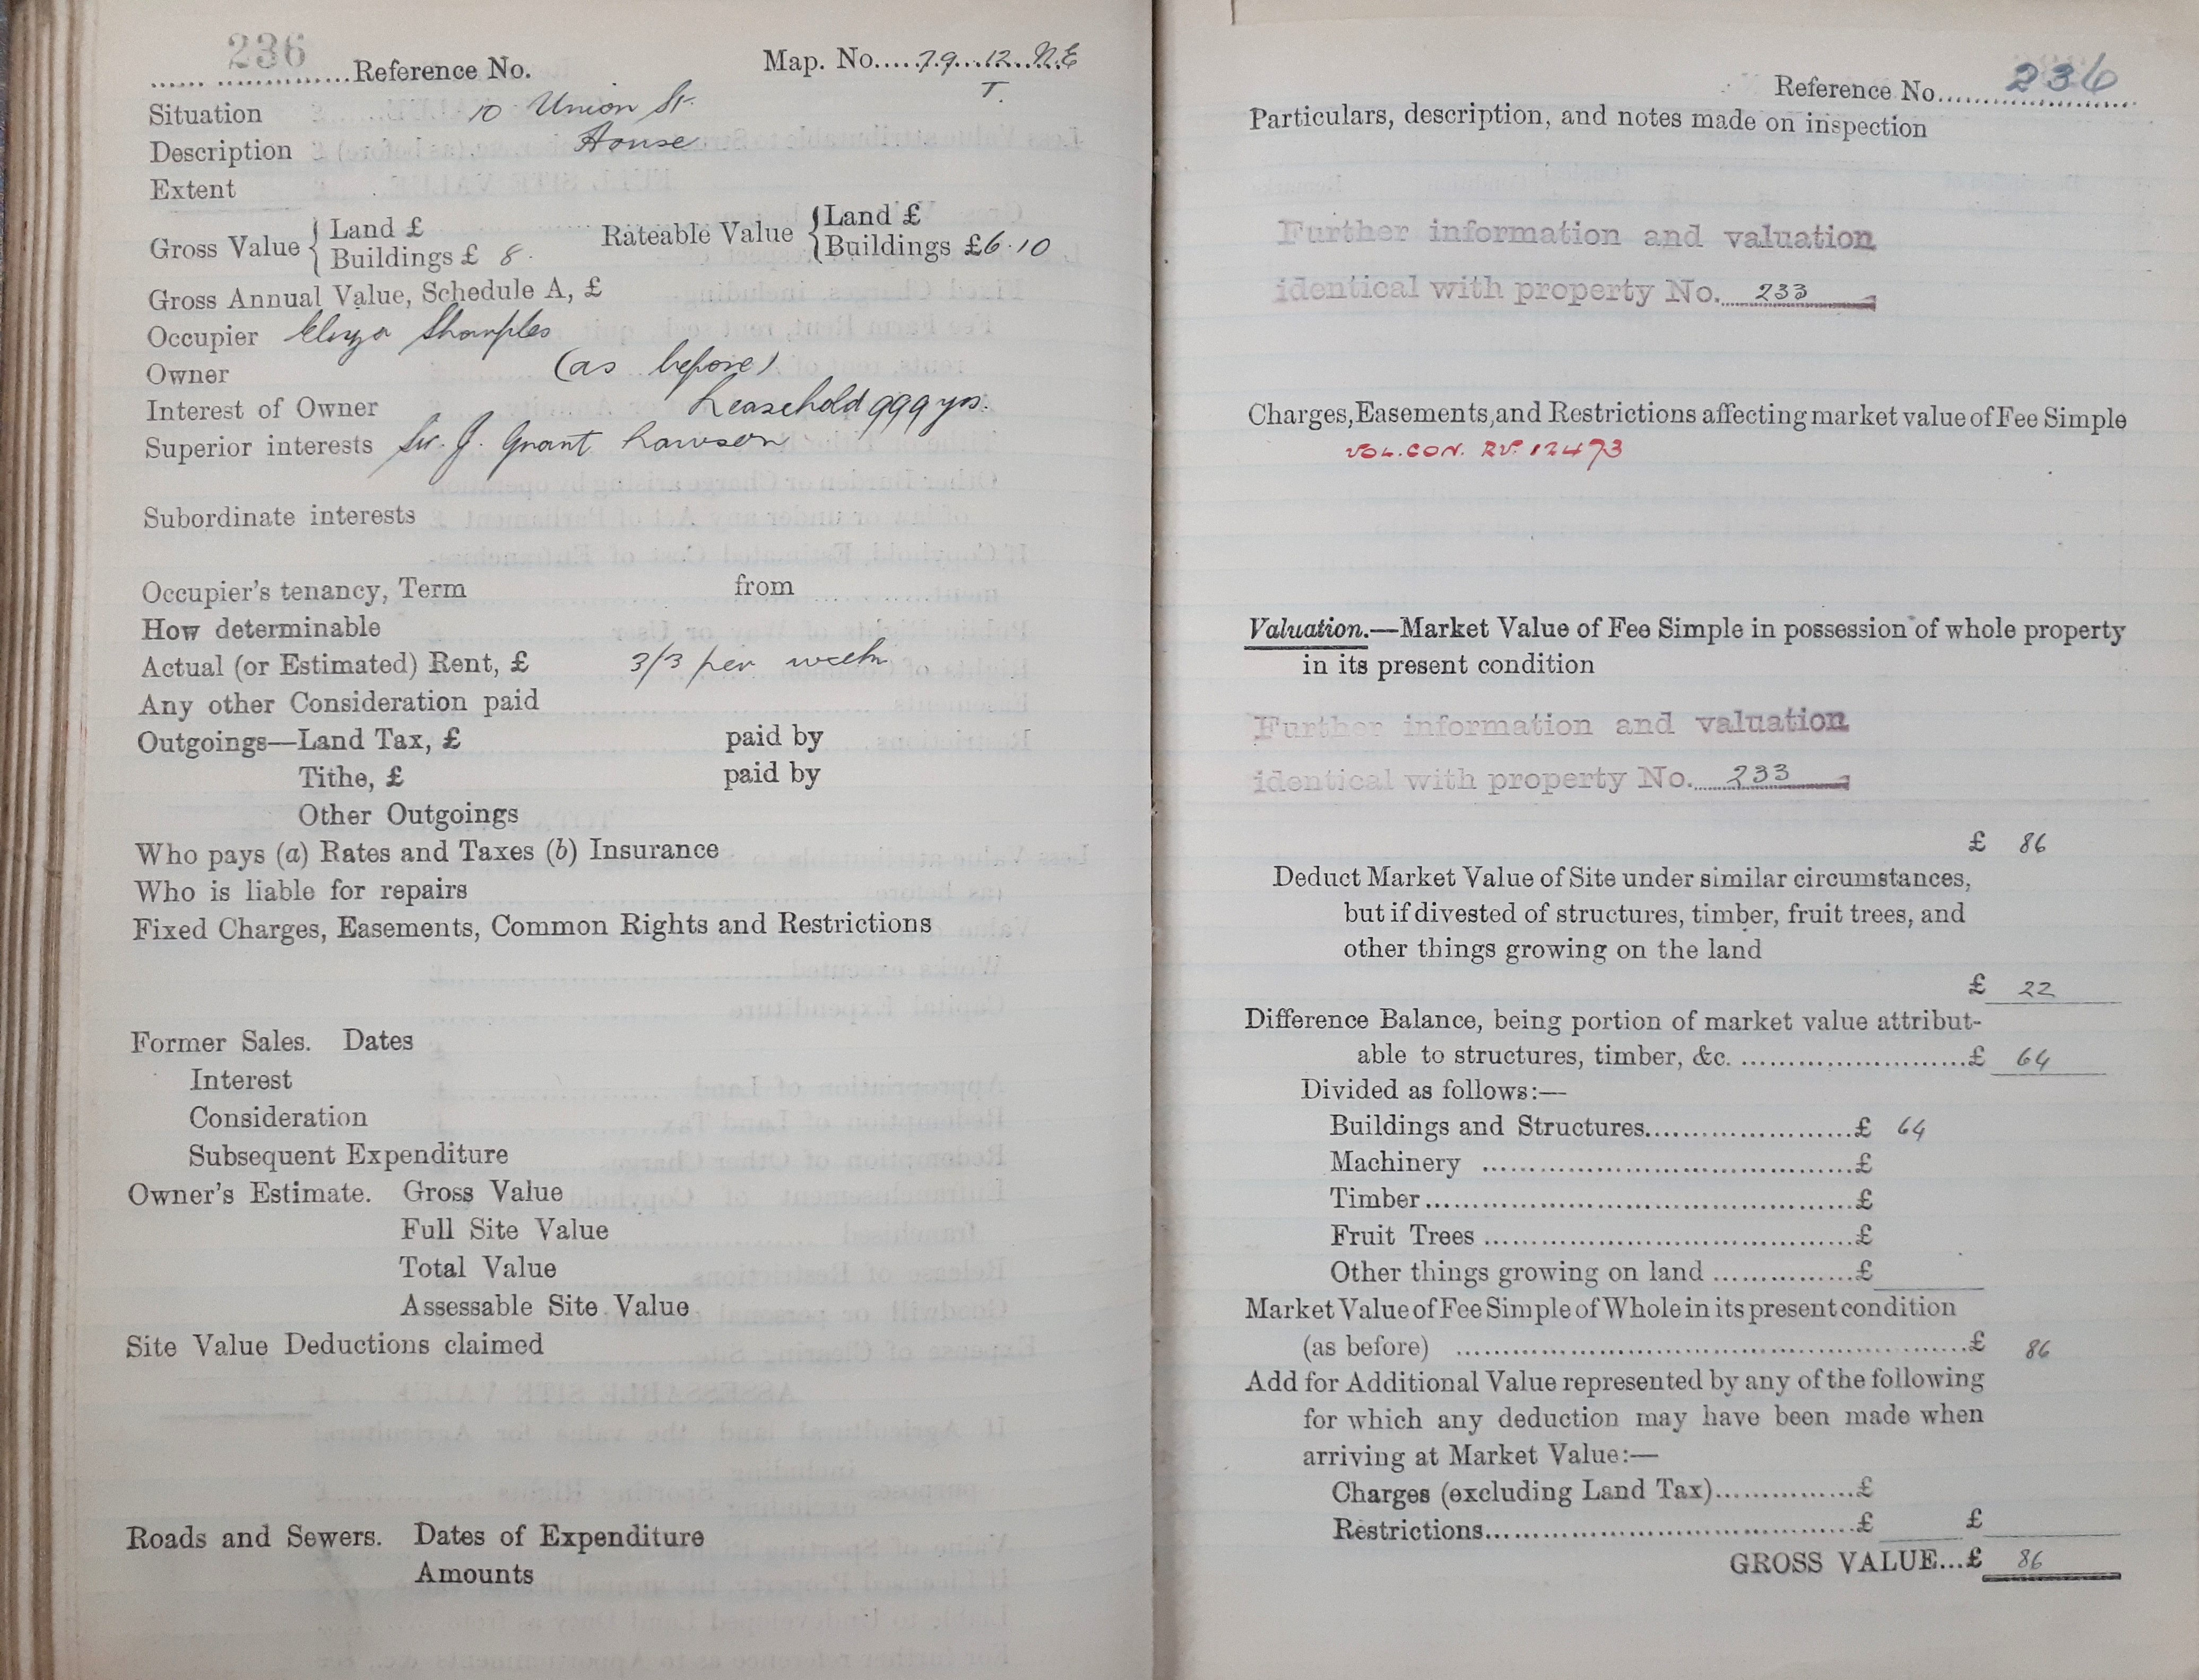 236
Reference No. Map. No. 79.12.N.E
T.
Situation 10 Union St.
Description House
Extent
Gross Value { Land £
Buildings £ 8.
Rateable Value { Land £
Buildings £6.10
Gross Annual Value, Schedule A, £
Occupier Eliza Sharples
Owner (as before)
Interest of Owner Leasehold 999 yrs.
Superior interests Sir. J. Grant Lawson
Subordinate interests
Occupier's tenancy, Term from
How determinable
Actual (or Estimated) Rent, £ 3/3 per week
Any other Consideration paid
Outgoings—Land Tax, £ paid by
Tithe, £ paid by
Other Outgoings
Who pays (a) Rates and Taxes (b) Insurance
Who is liable for repairs
Fixed Charges, Easements, Common Rights and Restrictions
Former Sales. Dates
Interest
Consideration
Subsequent Expenditure
Owner's Estimate. Gross Value
Full Site Value
Total Value
Assessable Site Value
Site Value Deductions claimed
Roads and Sewers. Dates of Expenditure
Amounts
Reference No. 236
Particulars, description, and notes made on inspection
Further information and valuation
identical with property No. 233
Charges, Easements, and Restrictions affecting market value of Fee Simple
VOL. CON. RV. 12473
Valuation.—Market Value of Fee Simple in possession of whole property
in its present condition
Further information and valuation
identical with property No. 233
£ 86
Deduct Market Value of Site under similar circumstances,
but if divested of structures, timber, fruit trees, and
other things growing on the land
£ 22
Difference Balance, being portion of market value attribut-
able to structures, timber, &c. £ 64
Divided as follows:—
Buildings and Structures £ 64
Machinery £
Timber £
Fruit Trees £
Other things growing on land £
Market Value of Fee Simple of Whole in its present condition
(as before) £ 86
Add for Additional Value represented by any of the following
for which any deduction may have been made when
arriving at Market Value:—
Charges (excluding Land Tax) £
Restrictions £ £
GROSS VALUE...£ 86